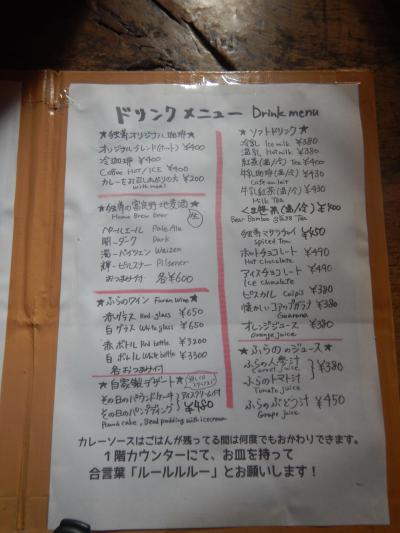 ドリンクメニュー Drink menu
★唯我オリジナル珈琲★
オリジナルブレンド(ホット) ¥400
冷珈琲 ¥400
Coffee HOT/ICE ¥400
カレーをお召しあがりの方 ¥200
with meal
★唯我の富良野地麦酒★
Home Brew Beer
ペールエール Pale Ale
闇ーダーク Dark
Weizen
輝ーピルスナー Pilsener
おつまみ付 各¥600
★ふらのワイン Furano wine★
赤グラス Red glass ¥650
白グラス White glass ¥650
赤ボトル Red bottle ¥3200
白ボトル White bottle ¥3300
各おつまみ付
★自家製デザート★
その日のパウンドケーキ
その日のパンプディング
アイスクリーム付
¥480
Pound cake, Bread pudding with icecream
★ソフトドリンク★
冷乳 Ice milk ¥380
温乳 Hot milk ¥380
紅茶(温/冷) Tea ¥400
牛乳珈琲(温/冷) ¥430
Cafe au lait
牛乳紅茶(温/冷) ¥430
Milk Tea
くま笹茶(温/冷) ¥400
Bear Bamboo grass Tea
唯我マサラチャイ ¥450
Spiced tea
ホットチョコレート ¥490
Hot chocolate
アイスチョコレート ¥490
Ice chocolate
ピスカル Calpis ¥380
懐かしいコアップガラナ ¥380
Guarana
オレンジジュース ¥380
Orange juice
★ふらののジュース★
ふらの人参汁
Carrot juice
ふらのトマト汁
Tomato juice
¥380
ふらのぶどう汁 ¥450
Grape juice
カレーソースはごはんが残ってる間は何度でもおかわりできます。
1階カウンターにて、お皿を持って
合言葉「ルールルルー」とお願いします!